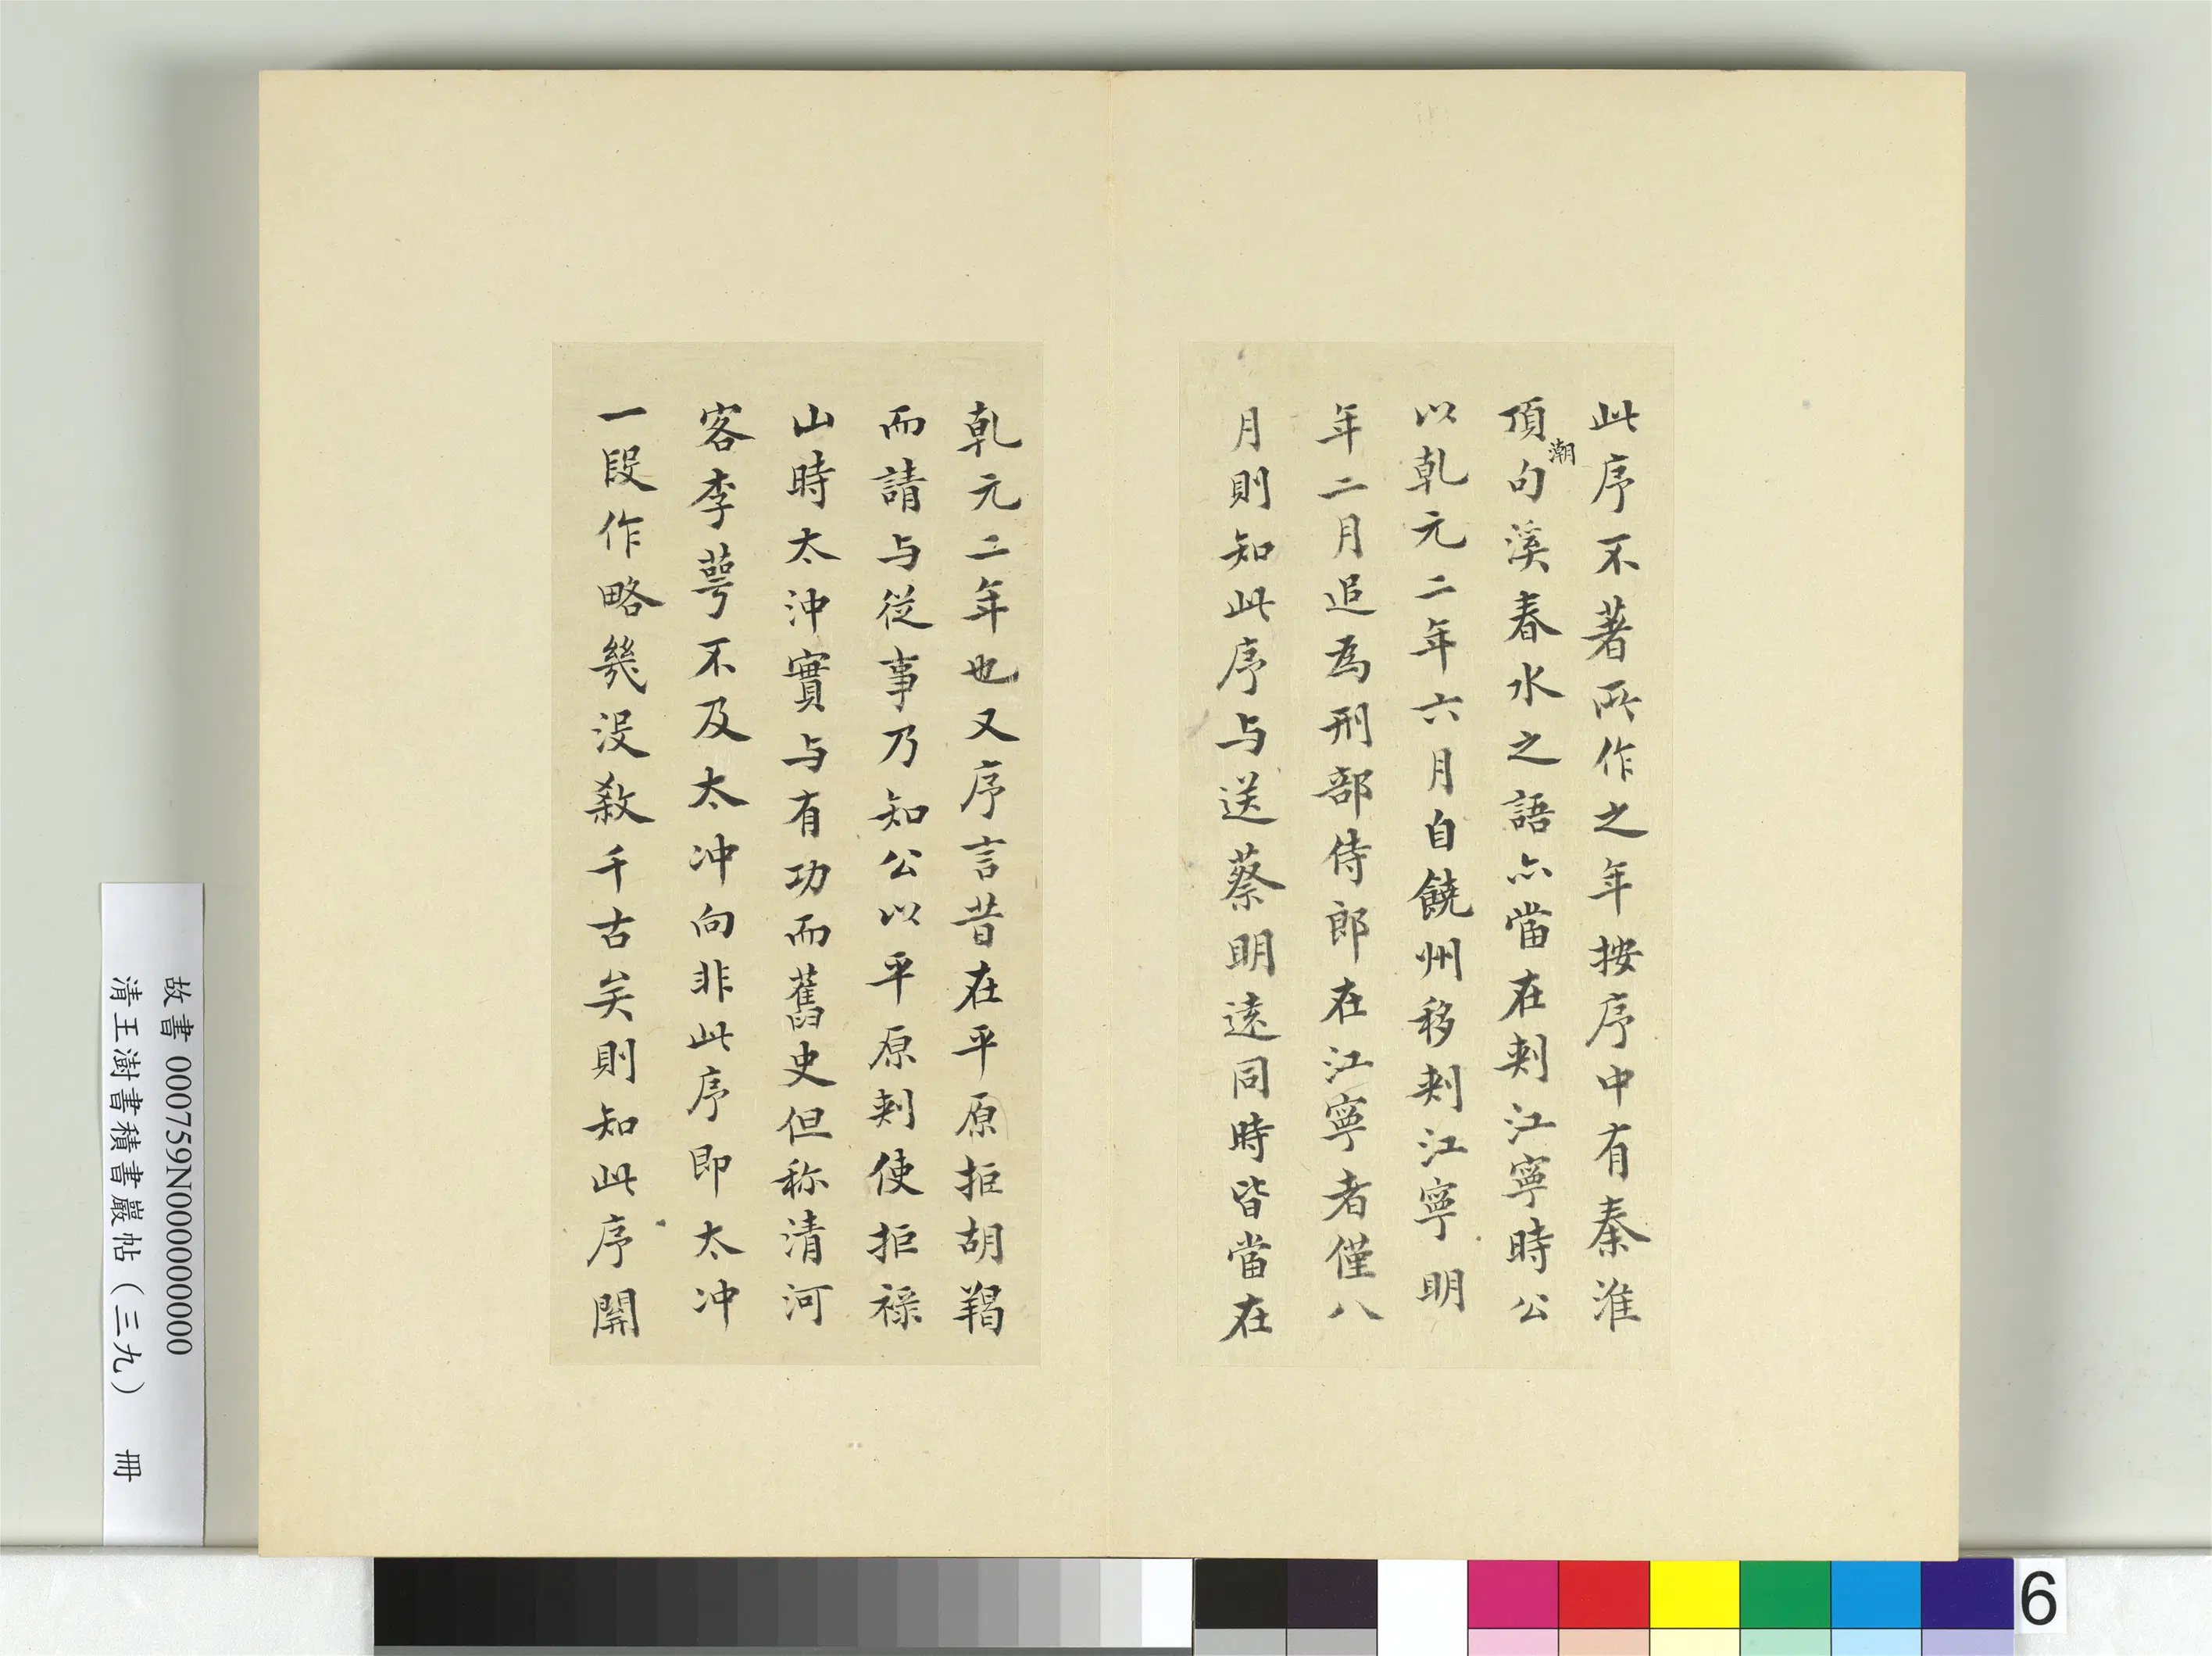 此序不著所作之年按序中有秦淮
頂潮句溪春水之語亦當在刺江寧時公
以乾元二年六月自饒州移刺江寧明
年二月追為刑部侍郎在江寧者僅八
月則知此序与送蔡明遠同時皆當在
乾元二年也又序言昔在平原拒胡羯
而請与從事乃知公以平原刺使拒祿
山時太沖實与有功而舊史但称清河
客李萼不及太冲向非此序即太冲
一段作略幾沒殺千古矣則知此序開
故書 000759N000000000
清王澍書積書巖帖（三九） 冊
6